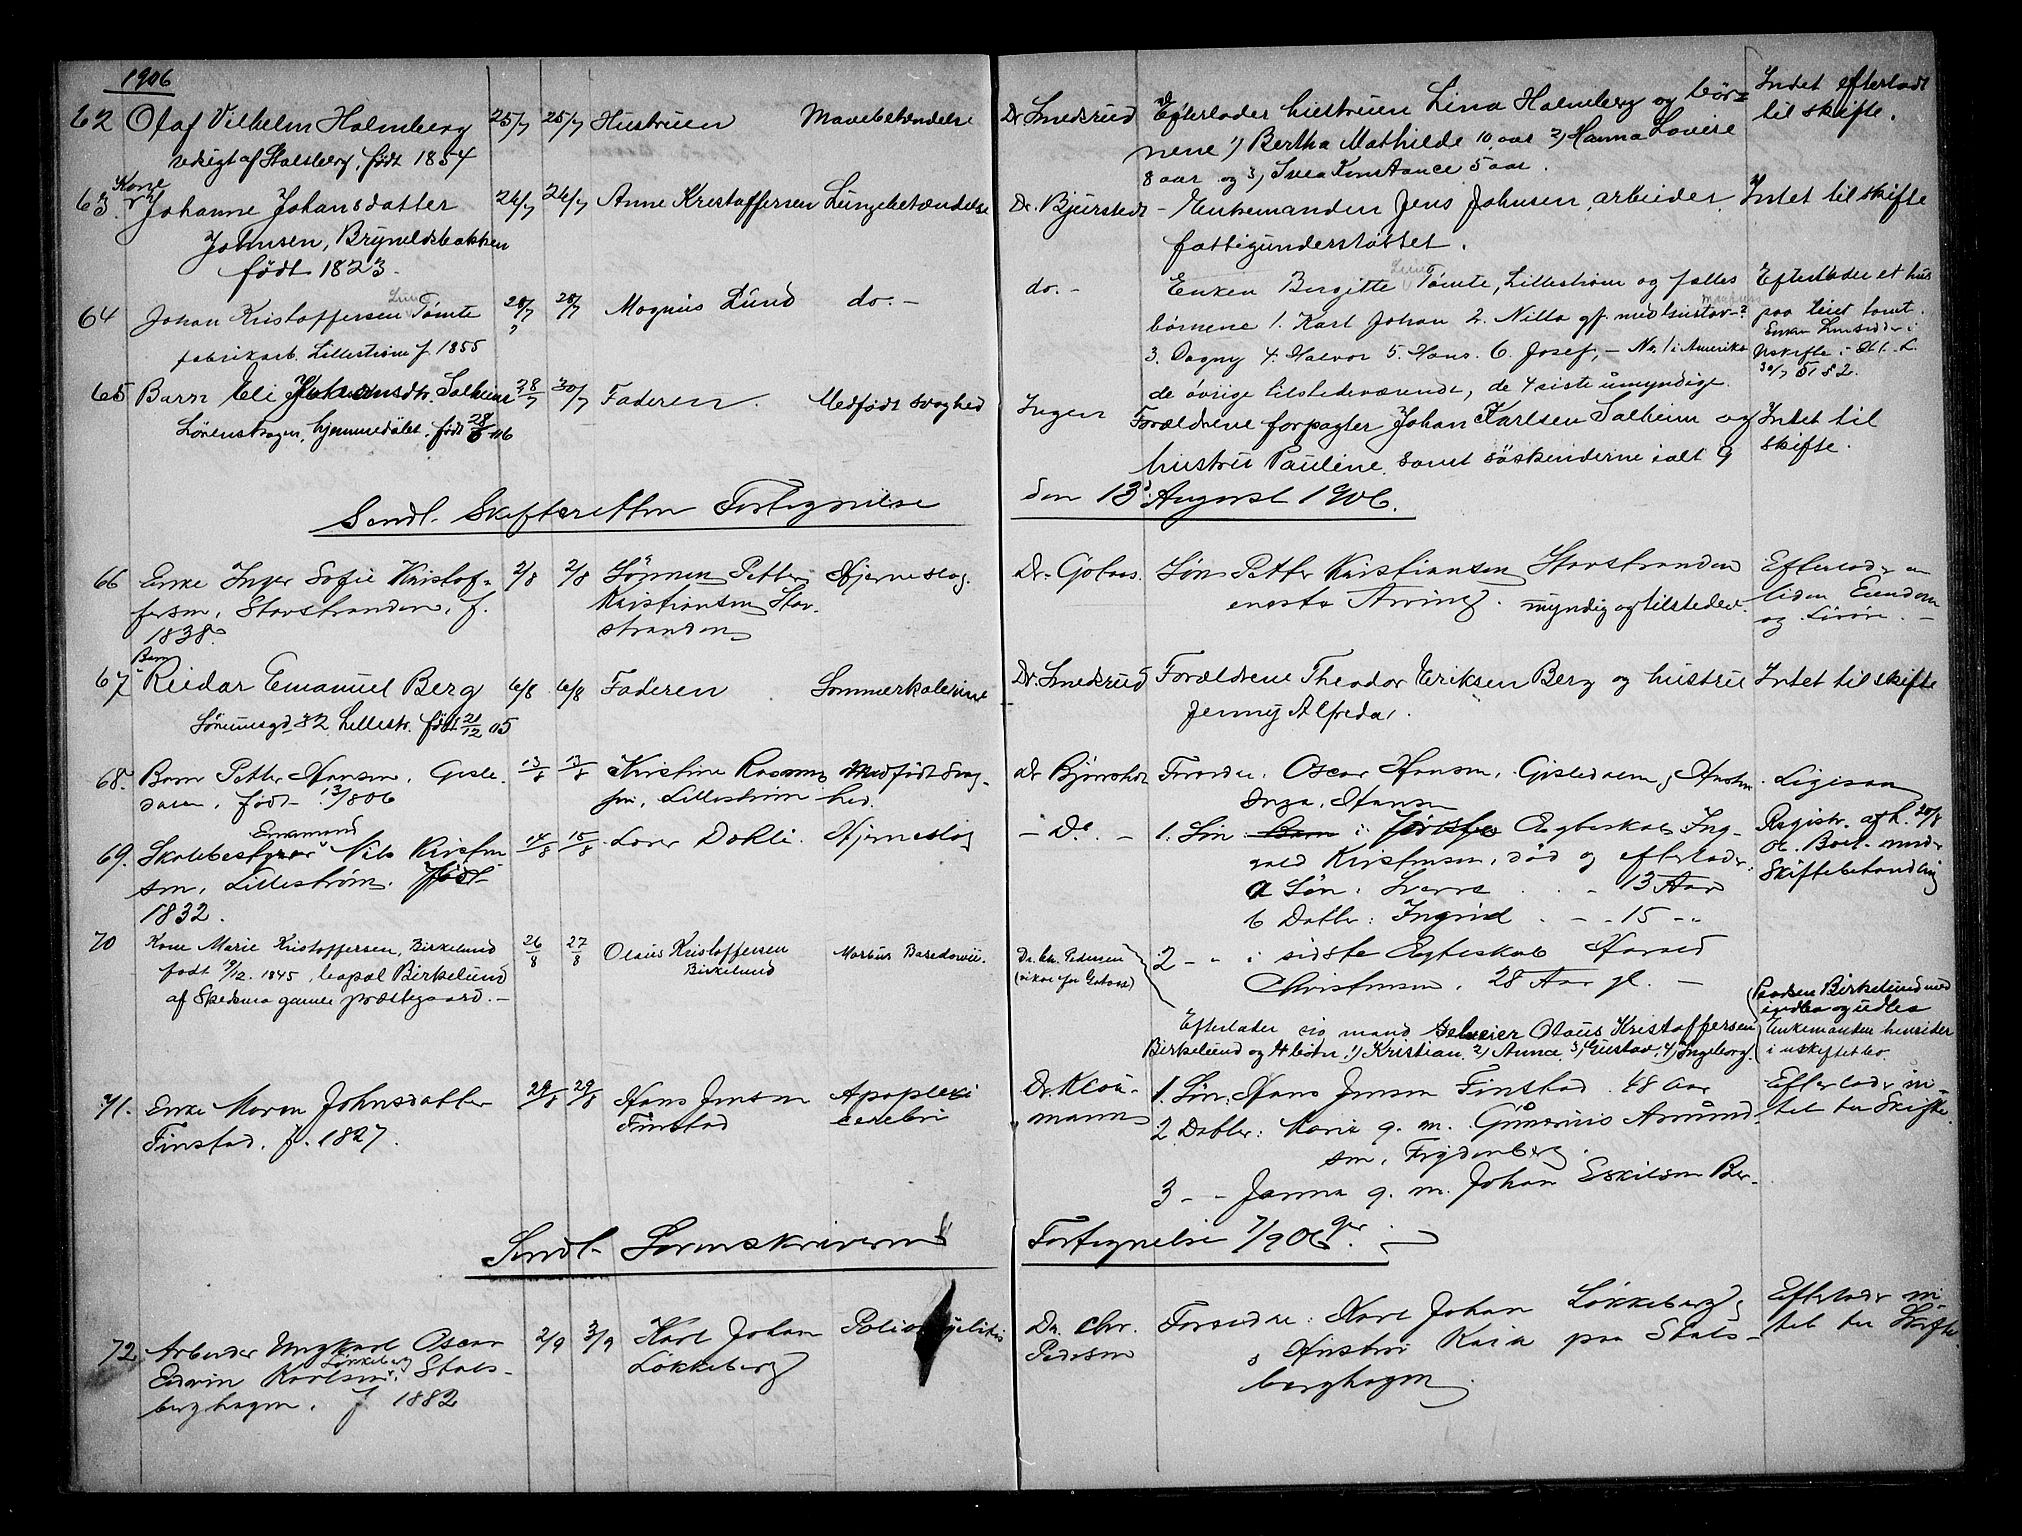 1906
62 Olaf Vilhelm Holmberg 25/7 25/7 Hustruen Mavebetændelse Dr Smedsrud Efterlader hustruen Lina Holmberg og bør= Intet efterladt
af Stalsberg, født 1854 nene 1) Bertha Mathilde 10 aar 2) Hanna Lovise til skifte.
8 aar og 3) Svea Konstance 5 aar.
Kone
63. Johanne Johansdatter 26/7 26/7 Anne Kristoffersen Lungebetændelse Dr. Bjørstedt - Enkemanden Jens Johnsen, arbeider, Intet til skifte
Johnsen, Bryneldsbakken fattigunderstøttet.
født 1823.
64 Johan Kristoffersen Lund Tømte 28/7 28/7 Magnus Lund do.- do.- Enken Bergitte Lund Tømte, Lillestrøm og fælles Efterlader et hus
fabrikarb. Lillestrøm f. 1855 børnene 1. Karl Johan 2. Nilla gf. med Gustav Magnus -? paa leiet tomt.
3. Dagny 4. Halvor 5. Hans. 6. Josef, - No. 1 i Amerika Enken
de øvrige tilstedeværende, de 4 siste umyndige. Uskifte
65 Barn Eli Johansdtr. Solheim 28/7 30/7 Faderen. Medfødt svaghed Ingen Forældrene forpagter Johan Karlsen Solheim og Intet til
Lørenskogen, hjemmedøbt. født 28/6 06 hustru Pauline, samt søskenderne ialt 9 skifte.
Sendt Skifteretten Fortegnelse den 13de August 1906.
66 Enke Inger Sofie Kristof= 2/8 2/8 Sønnen Petter Hjerneslag. Dr. Gotaas. Søn Petter Kristiansen Storstranden Efterlader en
fersen, Storstranden, f. Kristiansen Stor- eneste Arving. myndig og tilstedev. liden Eiendom
1838. stranden og Løsøre. -
Barn
67 Reidar Emanuel Berg 6/8 6/8 Faderen Sommerkolerine Dr. Smedsrud Forældrene Theodor Eriksen Berg og hustru Intet til skifte
82 Lillestr. født 21/12 05 Jenny Alfreda.
68. Barn Petter Hansen, Gisle- 13/8 13/8 Kristine Rasmus- Medfødt Svag- Dr Bjørstedt Forældre: Oscar Hansen, Gisledalen, Hustru Ligesaa
dalen, født 13/8 06 sen, Lillestrøm hed. Inga Hansen
Enkemand
69. Skolebestyrer Nils Kristen 14/8 15/8 Dokli. Hjerneslag - Do. - 1. Søn i første Ægteskab Ing- Registr. afh. 20/8
sen, Lillestrøm. Født vald Kristensen, død og efterlader: Boet under
1832. a Søn: Sverre - 13 Aar Skiftebehandling
b Datter: Ingrid - - 15 - "
70 Kone Marie Kristoffersen, Birkelund 26/8 27/8 Olaus Kristoffersen Morbus Basedowii. Dr. Chr. Pedersen 2 - " i sidste Ægteskab Harald
født 19/12. 1845, bopæl Birkelund Birkelund (vikar for Gotaas) Christensen, 28 Aar gl. -
af Skedsmo gamle præstegaard. - Efterlader sig mand Selveier Olaus Kristoffersen Parsellen Birkelund med
Birkelund og 4 børn: 1) Kristian, 2) Anna, 3) Gustav, 4) Ingeborg. Enkemanden hensidder
i uskiftet bo.
71. Enke Maren Johnsdatter 29/8 29/8 Hans Jensen Apoplexi Dr. Klou- 1. Søn: Hans Jensen Finstad 48 Aar Efterlader in-
Finstad. f. 1827. Finstad cerebri mann 2. Datter: Maria g. m. Gunerius Amund- tet til Skifte.
sen, Frydenberg.
3 - - Janna g. m. Johan Eskilsen Ber-
ger.
Sendt Sorenskriveren Fortegnelse 7/9 06.
72. Arbeider Ungkarl Oscar 2/9 3/9 Karl Johan Poliomyelitis Dr. Chr. Forældre: Karl Johan Løkkeberg Efterlader in-
Edvin Karlsen Løkkeberg, Stals- Løkkeberg Pedersen Hustru Kaia paa Stals- tet til Skifte.
berghagen. f 1882 berghagen.